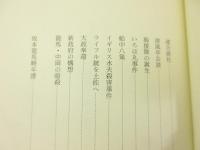 清風亭会談
海援隊の誕生
いろは丸事件
船中八策
イギリス水夫殺害事件
ライフル銃を土佐へ
大政奉還
新政府の構想
龍馬・中岡の暗殺
坂本龍馬略年譜